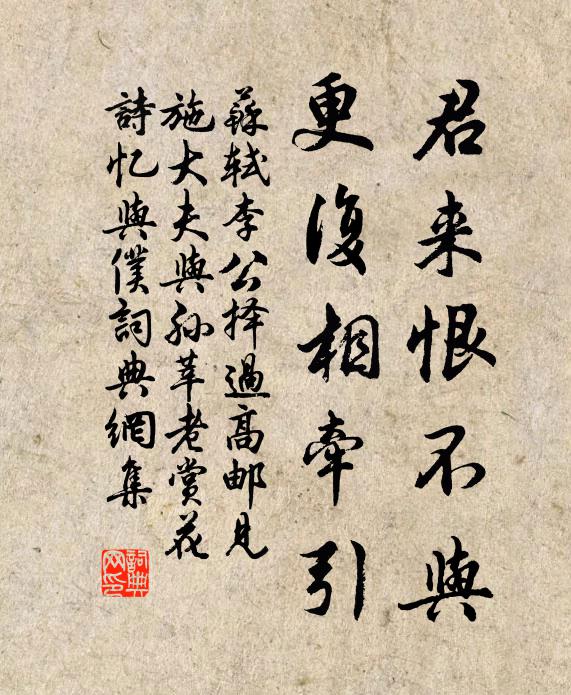 君来恨不與
更復相牽引
蘇轼李公择過高邮見
施大夫與孙莘老賞花
詩忆與僕詞典網集
詞典
网印